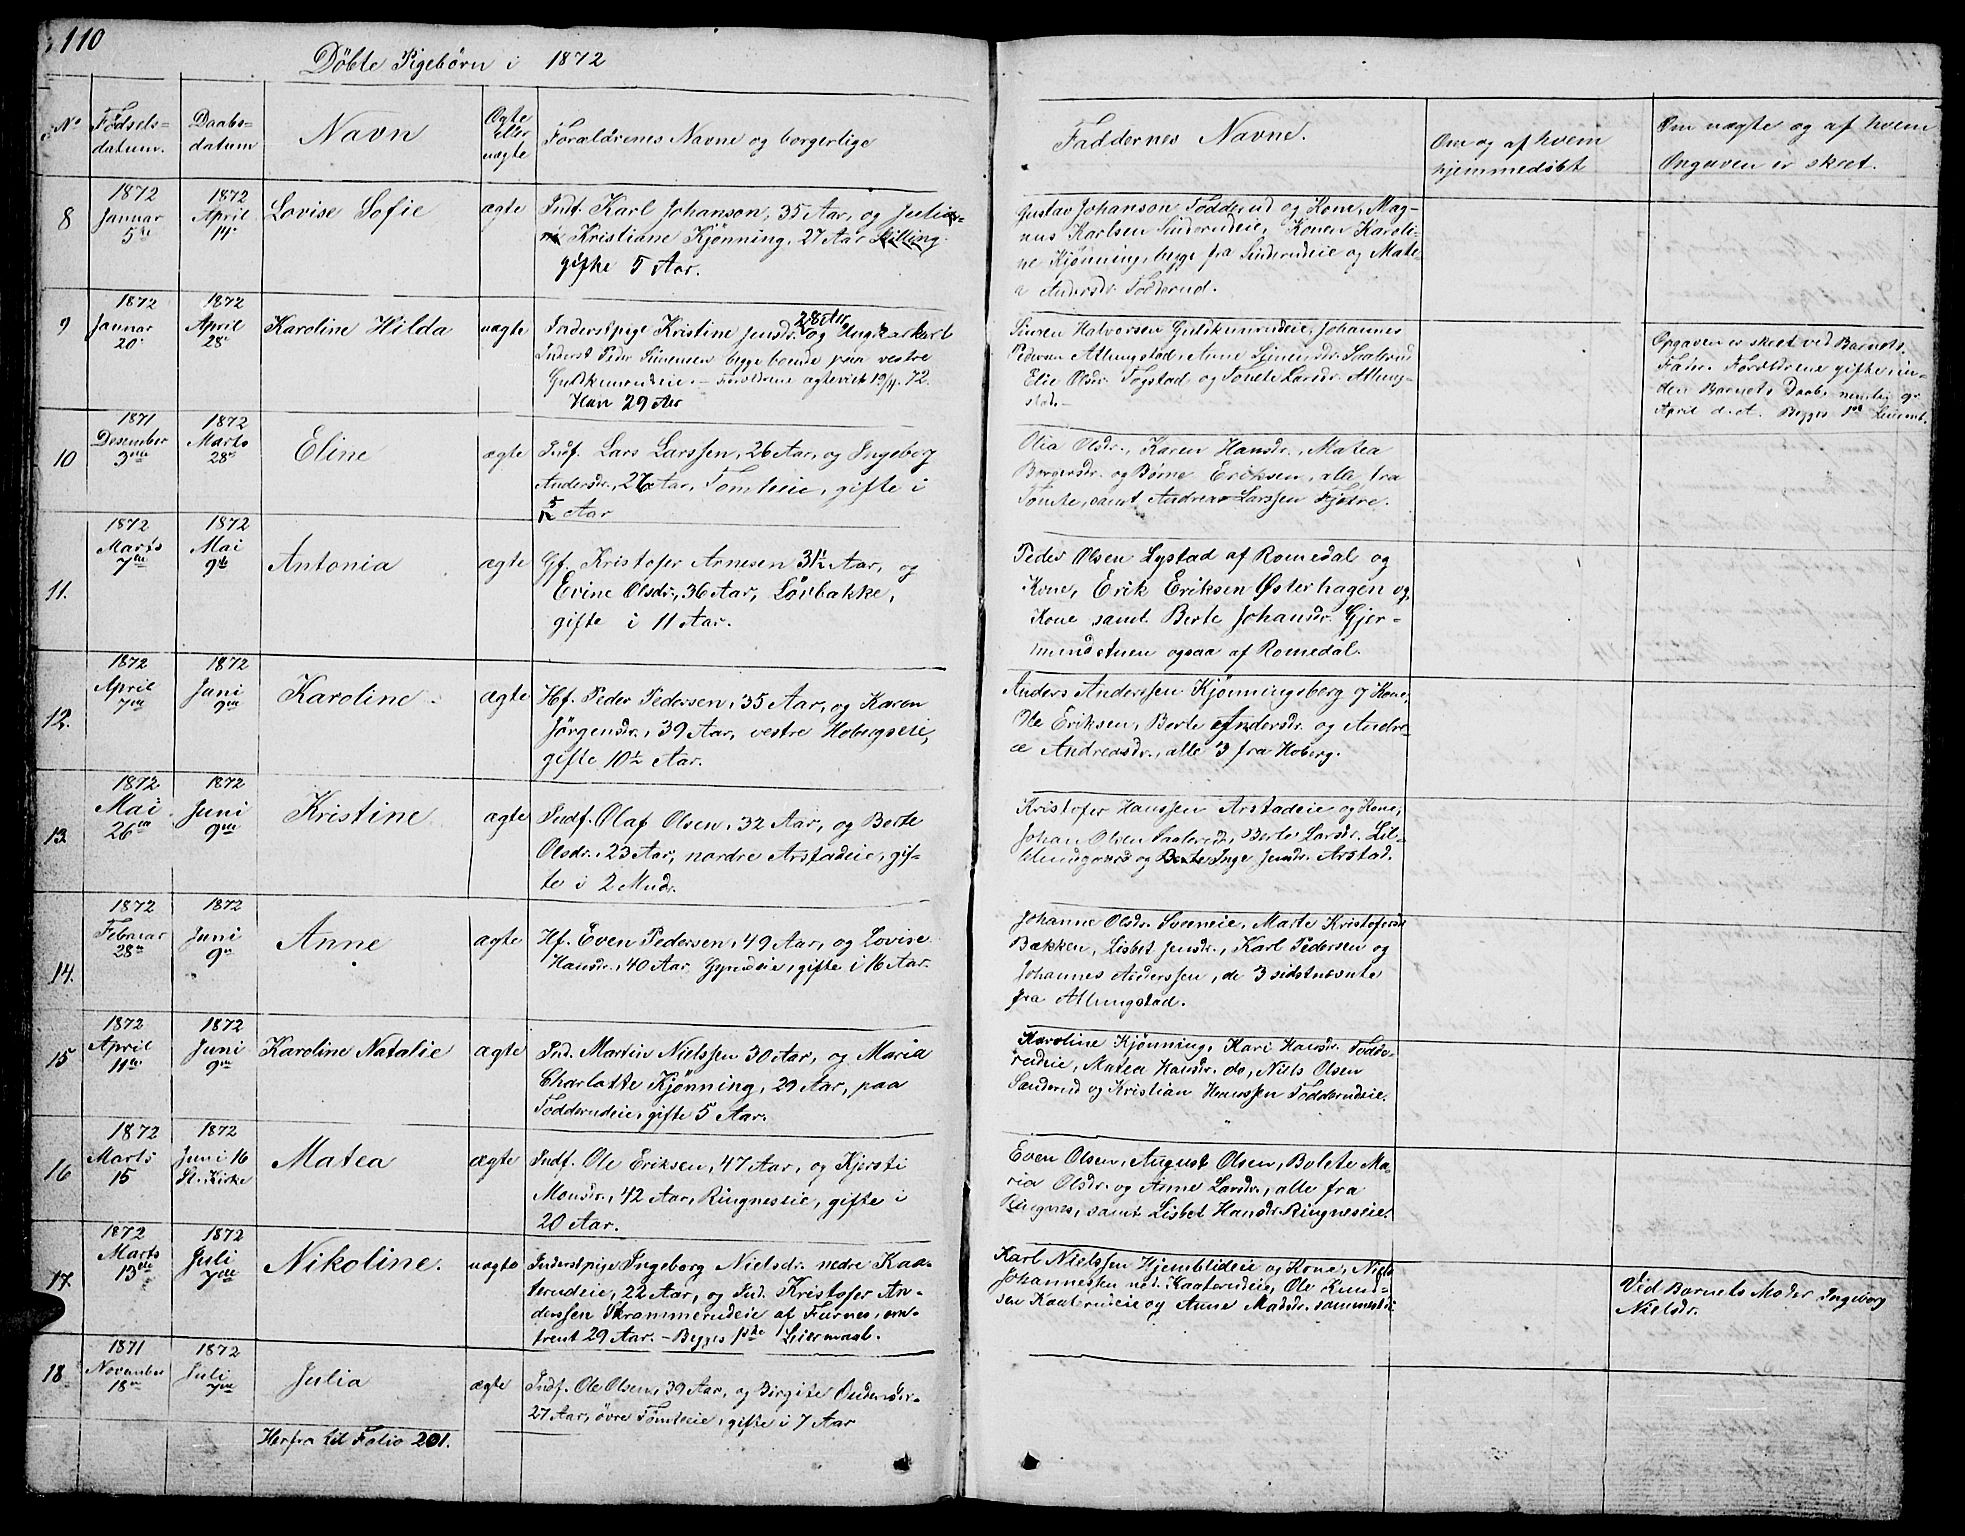 110
Döbte Pigebørn i 1872
No Fødsels- Daabs- Navn Ægte Forældrenes Navne og borgerlige
datum. datum eller
uægte
Faddernes Navne. Om og af hvem Om uægte og af hvem
hjemmedøbt Opgaven er skeet.
8 1872 Januar 5te 1872 April 14 Lovise Sofie ægte Indf. Karl Johanson, 35 Aar, og Julia-
ne Kristiane Kjønning, 27 Aar
gifte 5 Aar.
Gustav Johanson Fodderud og Kone, Mag-
nus Karlsen Sinderudeie, Konen Karoli-
ne Kjønning, begge fra Sinderudeie og Mate-
a Andersdr. Fodderud.
9 1872 Januar 20 1872 April 28 Karoline Hilda uægte Inderstpige Kristine Jensdr. 28 Aar og Ungkarkarl
Inderst Peder Simensen begge boende paa vestre
Guldkunrudeie. – Forældrene ægteviet 19/4 72.
Han 29 Aar
Simen Halvorsen Guldkunrudeie, Johannes
Pedersen Atlungstad, Anne Simensdr. Saaterud
Elie Olsdr. Togstad og Tonete Larsdr. Atlung-
stad.
Opgaven er skeet ved Barnets
Fader. Forældrene gifte in-
den Barnets Daab, nemlig 9.
April d. A. Begges 1ste Leierm.
10 1871 Desember 3die 1872 Marts 28 Eline ægte Indf. Lars Larssen, 26 Aar, og Ingeborg
Andersdr., 26 Aar, Tomteeie, gifte i
Aar
Olia Olsdr., Karen Hansdr., Matea
Borgersdr. og Børne Eriksen, alle fra
Tomte, samt Andreas Larssen Fjetre.
11. 1872 Marts 7de 1872 Mai 9de Antonia ægte Gf. Kristofer Arnesen 31½ Aar, og
Evine Olsdr., 36 Aar, Lövbakke,
gifte i 11 Aar.
Peder Olsen Lystad af Romedal og
Kone, Erik Eriksen Østerhagen og
Kone samt Berte Johansdr. Gjer-
mundstuen ogsaa af Romedal.
12. 1872 April 7de 1872 Juni 9de Karoline ægte Hf. Peder Pedersen, 35 Aar, og Karen
Jörgensdr., 39 Aar, vestre Hobergseie,
gifte 10½ Aar.
Anders Anderssen Kjønningsberg og Kone,
Ole Eriksen, Berte Andersdr. og Andre-
a Andreasdr., alle 3 fra Hoberg.
13. 1872 Mai 26de 1872 Juni 9de Kristine ægte Indf. Olaf Olsen, 32 Aar, og Berte
Olsdr., 23 Aar, nordre Arstadeie, gif-
te i 2 Mndr.
Kristofer Hanssen Arstadeie og Kone,
Johan Olsen Saaterud, Berte Larsdr. Lil-
leungaard og Inge Jensdr. Arstad.
14. 1872 Februar 28de 1872 Juni 9de Anne ægte Hf. Even Pedersen, 49 Aar, og Lovise
Hansdr., 40 Aar Gyrudeie, gifte i 16 Aar.
Johanne Olsdr. Sveneie, Marte Kristofersdr
Bækken, Lisbet Jensdr., Karl Pedersen og
Johannes Anderssen, de 3 sidstnævnte
fra Atlungstad.
15 1872 April 11te 1872 Juni 9de Karoline Natalie ægte Ind. Martin Nielssen 30 Aar, og Maria
Charlotte Kjönning, 29 Aar, paa
Fodderudeie, gifte 5 Aar.
Karoline Kjønning, Kari Hansdr. Fodde-
rudeie, Matea Hansdr. do, Niels Olsen
Sanderud og Kristian Hanssen Fodderudeie.
16 1872 Marts 15 1872 Juni 16 St. Kirke Matea ægte Indf. Ole Eriksen, 47 Aar, og Kjersti
Monsdr., 42 Aar, Ringneseie, gifte i
20 Aar.
Even Olsen, August Olsen, Bolete Ma-
ria Olsdr. og Anne Larsdr., alle fra
Ringnes, samt Lisbet Hansdr. Ringneseie.
17. 1872 Marts 13de 1872 Juli 7de Nikoline. uægte Inderstpige Ingeborg Nielsdr. nedre Kaa-
terudeie, 22 Aar, og Ind. Kristofer An-
derssen Skrammerudeie af Furnes, om-
trent 29 Aar. – Begges 1ste Leiermaal.
Karl Nielssen Hjemblideie og Kone, Niels
Johannessen ned. Kaaterudeie, Ole Knud-
sen Kaaterudeie og Anne Madsdr. sammesteds
Ved Barnets Moder Ingeborg
Nielsdr.
18 1871 November 18de 1872 Juli 7de Julia ægte Indf. Ole Olsen, 39 Aar, og Birgite
27 Aar, övre Tomteeie, gifte i 7 Aar
Herfra til Folio 201.